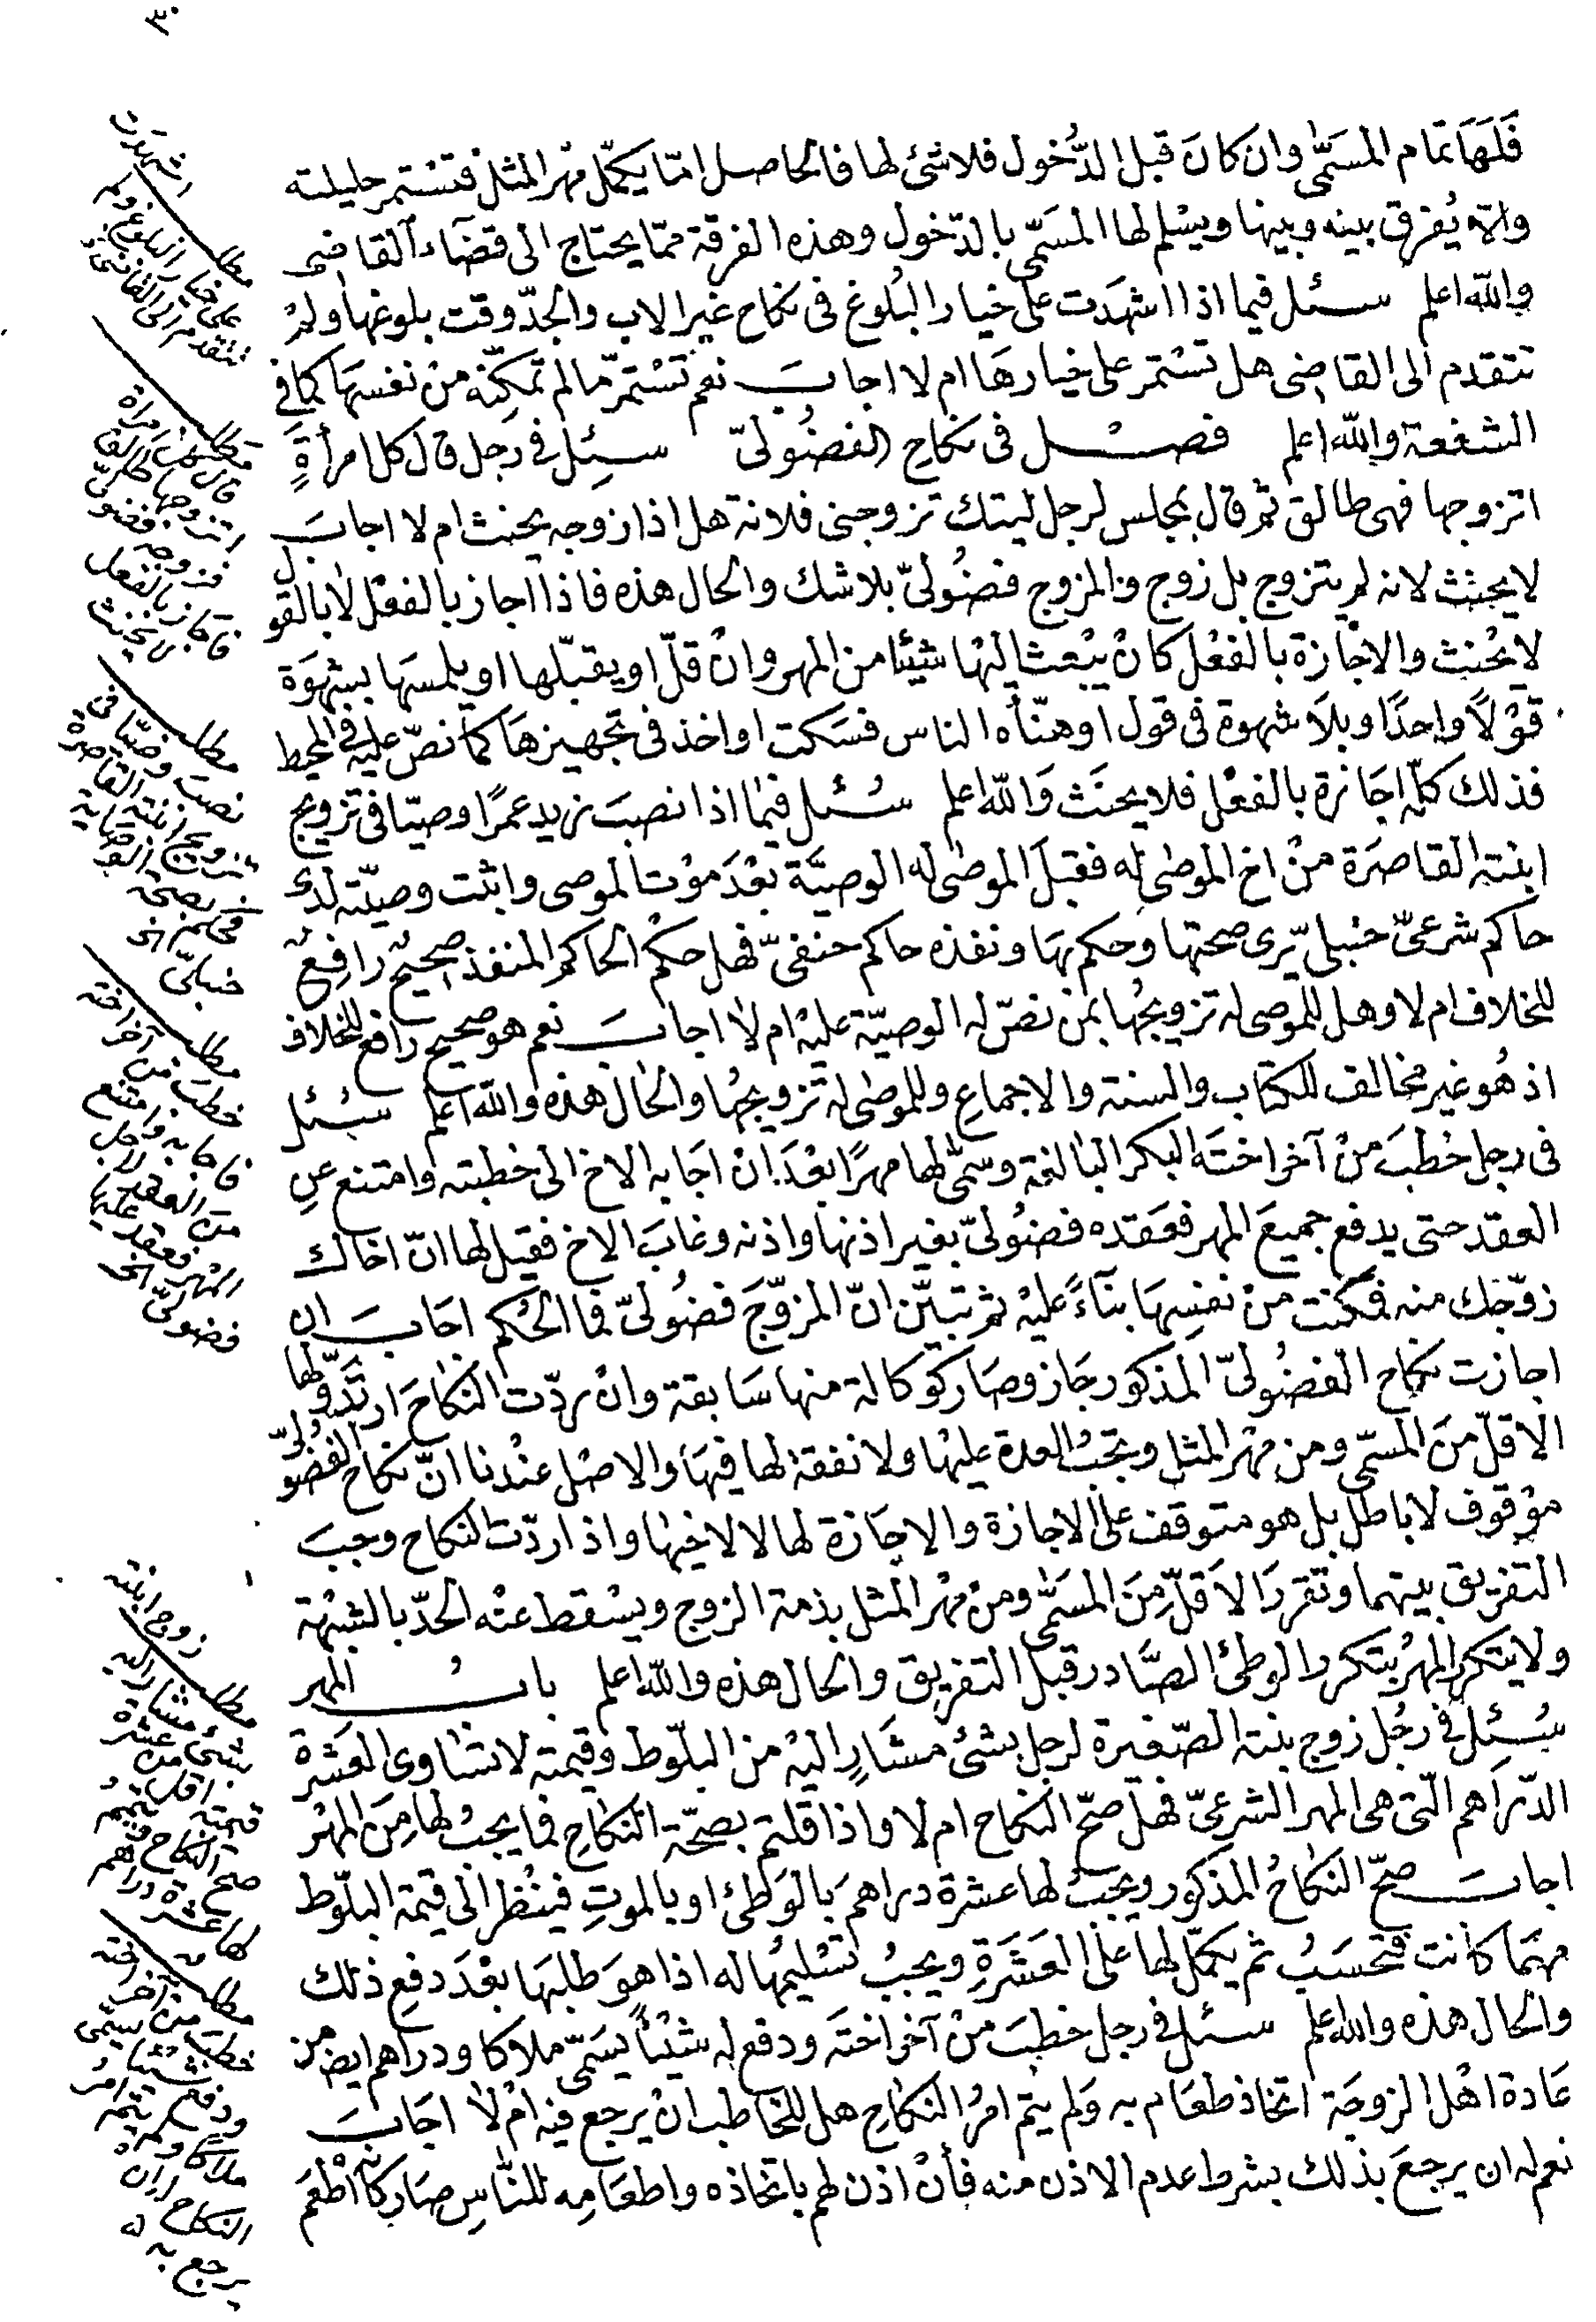 ٣٠
فَلَهَا تمام المسَمّى وان كانَ قبل الدُّخول فلا شئ لها فالحاصل امّا يكمّل مهر المثل فتستمر حليلته
والّا يُفرق بينه وبينها ويسْلم لها المسَمّى بالدّخول وهذه الفرقة ممّا يحتاج الى قضَاء القاضى
والله اعلم سئل فيما اذا اشهدَت على خيار البُلوغ فى نكاح غير الاب والجدّ وقت بلوغها ولمْ
تتقدم الى القاضى هل تسْتمر على خيارهَا ام لا اجابَ نعم تسْتمرّ ما لم تمكِّنه منْ نفسهَا كما فى
الشفعة والله اعلم فصْل فى نكاحِ الفضُولىّ سئِل فى رَجل قال كل امرأةٍ
اتزوجها فهى طالق ثم قال بمجلس لرجل ليتك تزوجنى فلانة هل اذا زوجه يحنث ام لا اجابَ
لا يحنث لانه لم يتزوج بل زوج والمزوج فضُولىّ بلا شك والحال هذه فاذا اجاز بالفعْل لا بالقول
لا يحْنث والاجازة بالفعْل كانْ يبْعث اليْها شيْئا من المهر وانْ قلّ او يقبّلها او يلمسَها بشهوَة
قوْلاً واحدًا وبلَا شهوة فى قول او هنّأه الناس فسَكت او اخذ فى تجهيزهَا كما نصّ عليه فى المحيط
فذلك كلّه اجَازة بالفعْل فلا يحنَث وَالله اعلم سُئل فيما اذا نصبَ زيد عمرًا وصيّا فى تزويج
ابنته القاصرَة منْ اخ الموصٰى له فقبلَ الموصٰى له الوصيَّة بعْدَ موْت الموصى واثبت وصيّته لدى
حاكم شرعىّ حنْبلىّ يرى صحتها وحكم بهَا ونفذه حاكم حنفىّ فهل حكْم الحاكم المنفذ صحيحٌ رافِعٌ
للخلاف ام لا وهل للموصى له تزويجُها بمن نصّ له الوصيّة عليْه ام لا اجابَ نعم هو صحيح رافع للخلاف
اذ هُو غير مخالف للكتاب والسنة والاجماعِ وللموصٰى له تزويجُها والحال هذه والله اعلم سُئل
فى رجل خطبَ منْ آخر اختَه البكر البالغة وسمّى لها مهرًا بعْدَ انْ اجَابه الاخ الى خطبته وامتنع عنِ
العقد حتى يدفع جميعَ المهر فعَقده فضُولىّ بغير اذنها واذنه وغابَ الاخ فقيل لها انّ اخاك
زوّجك منه فمكّنت منْ نفسِهَا بنَآءً عليْه ثم تبيّن انّ المزوّجَ فضُولىّ فما الحُكم اجَابَ ان
اجازت نكاح الفضُولىّ المذكور جَاز وصَار كوكالة منها سَابقة وانْ ردّت النكاحَ ارتَدَّ ولها
الاقلّ منَ المسمّى ومن مهْر المثل ويجبُ العدة عليْها ولا نفقة لها فيهَا والاصْل عنْدنا انّ نكاح الفضُولىّ
موْقوف لا باطل بل هو متوقف على الاجازة والاجَازة لها لا لاخيْها واذا ردّت النكاح وجبَ
التفريق بينهما وتقررَ الاقلّ مِنَ المسَمّى ومنْ مهْر المثل بذمة الزوج ويسْقط عنْه الحدّ بالشبْهة
ولا يتكرر المهْرُ بتكرر الوطئ الصَّادر قبل التفريق والحال هذه والله اعلم بابُ المهر
سُئِل فى رجُل زوج بنته الصّغيرة لرجل بشئ مشَارٍ اليْه من البلّوط وقيمته لا تسَاوى العَشرة
الدّرَاهم الّتى هى المهر الشرعىّ فهلْ صحّ النكاح ام لا واذا قلتم بصحّة النكَاحِ فما يجبُ لها مِنَ المهْر
اجابَ صحّ النكاحُ المذكور ويجبُ لها عشرة دراهمَ بالوَطئ او بالموتِ فينْظر الى قيمة البلّوط
مهمَا كانت فتحسَبُ ثم يكمّل لها على العَشَرَةِ ويجبُ تسْليمُها له اذا هوَ طلبَها بعْدَ دفع ذلك
والحال هذه والله اعلم سئل فى رجل خطبَ منْ آخر اختَه ودفع له شيْئاً يسَمّى ملاكا ودراهم ايضا من
عَادة اهْل الزوجَة اتخاذ طعَام به وَلم يتم امرُ النكاحِ هل للخاطب انْ يرجع فيْه امْ لا اجَابَ
نعم له ان يرجعَ بذلك بشرط عدم الاذن منه فأنْ اذن لهم باتخاذه واطعَامِه للنّاسِ صَار كأنّه اطْعَم
مطلب
على خيار البلوغ ولم
تتقدم الى القاضى
مطلب
قال كل امراة
اتزوجها طالق
فزوجه فضولى
فاجاز بالفعل
لا يحنث
مطلب
نصب وصيّا فى
تزويج ابنته القاصرة
حنبلىّ
مطلب
خطب من آخر اخته
فاجابه وامتنع
من العقد لاجل
المهر فعقد عليها
فضولىّ الخ
مطلب
زوج ابنته
بشئ مشار اليه
قيمته اقل من عشرة
صح النكاح وتتمم
لها عشرة دراهم
مطلب
خطب من آخر اخته
ودفع شيئا يسمّى
ملاكا ولم يتم امر
النكاح له ان
يرجع به